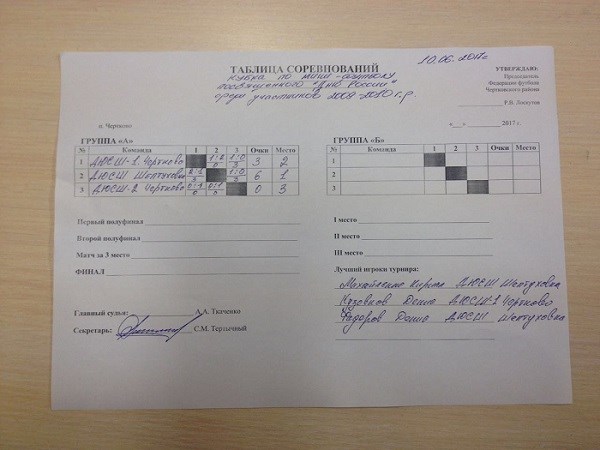 10.06.2017г
ТАБЛИЦА СОРЕВНОВАНИЙ
УТВЕРЖДАЮ:
Кубка по мини-футболу
посвященного "Дню России"
среди участников 2009-2010 г.р.
Председатель
Федерации футбола
Чертковского района
Р.В. Лоскутов
«__» ________ 2017 г.
п. Чертково
ГРУППА «А»
№ Команда 1 2 3 Очки Место
1 ДЮСШ-1 Чертково 1:2 0 1:0 3 3 2
2 ДЮСШ Шептуховка 2:1 3 1:0 3 6 1
3 ДЮСШ-2 Чертково 0:1 0 0:1 0 0 3
ГРУППА «Б»
№ Команда 1 2 3 Очки Место
1
2
3
Первый полуфинал
Второй полуфинал
Матч за 3 место
ФИНАЛ
I место
II место
III место
Лучшие игроки турнира:
Кирилл ДЮСШ Шептуховка
Даниа ДЮСШ-1 Чертково
Федоров Даниа ДЮСШ Шептуховка
Главный судья: А.А. Ткаченко
Секретарь: С.М. Терзычный